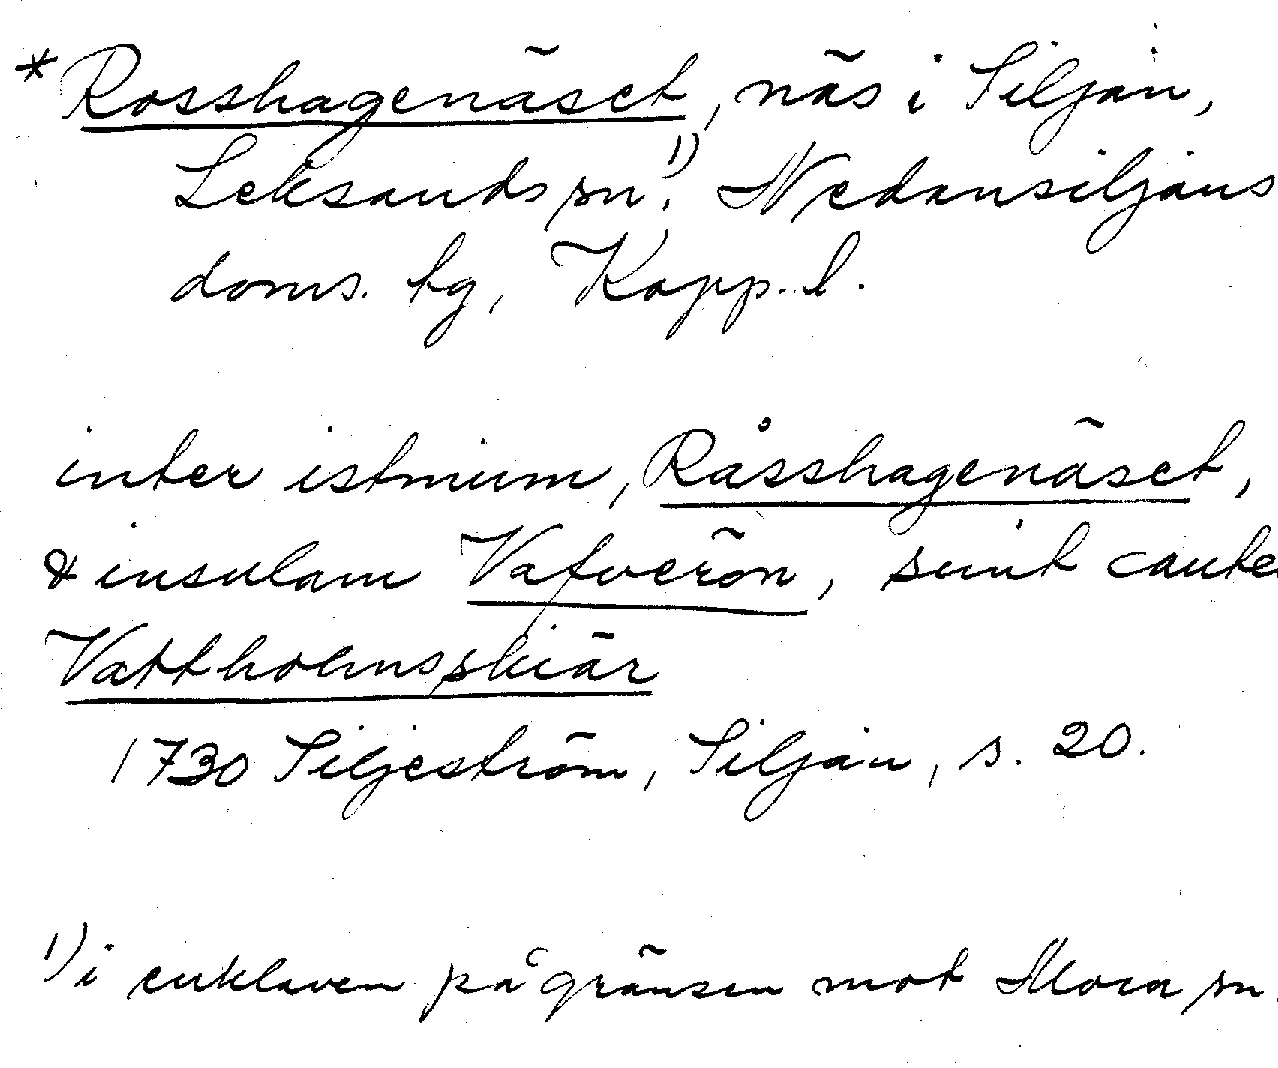 * Rosshagenäset, näs i Siljan,
Leksands sn,¹⁾ Nedansiljans
doms. tg, Kopp. l.
inter istmum, Råsshagenäset,
& insulam Vafverön, sunt caute
Vattholmsskiär
1730 Siljeström, Siljan, s. 20.
¹⁾ i enklaven på gränsen mot Mora sn.